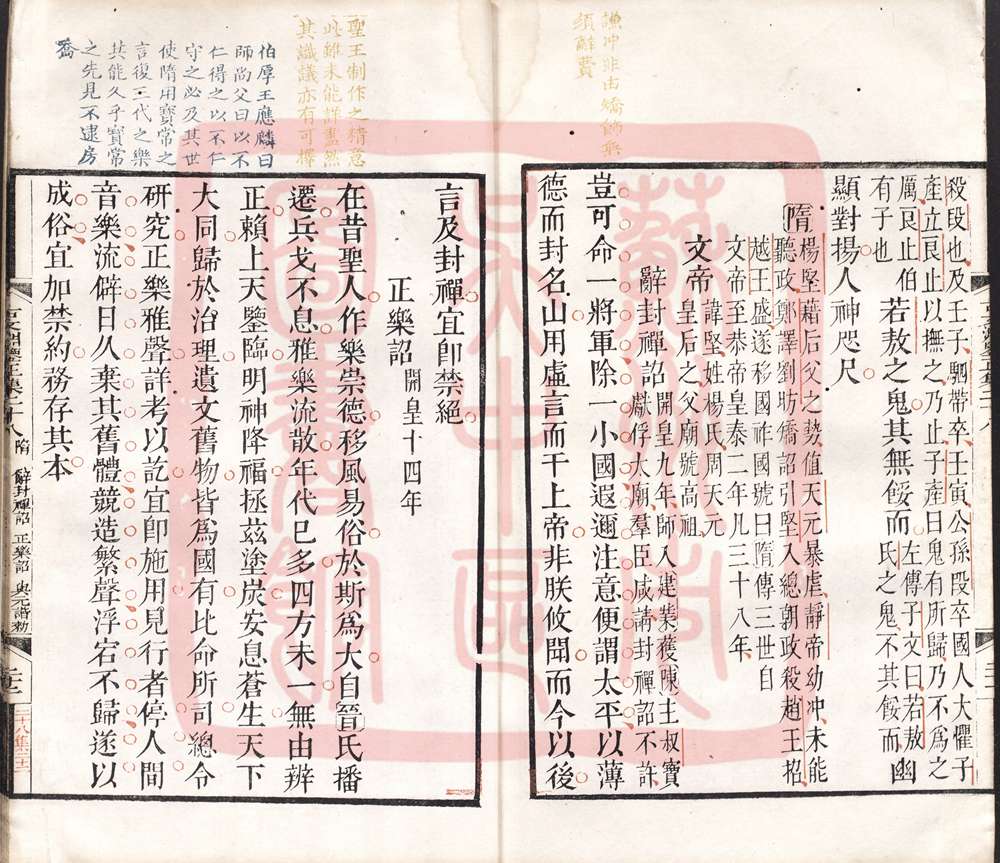 謙沖非由矯飾無
須辭費
殺段也及壬子駟帶卒壬寅公孫段卒國人大懼子
產立良止以撫之乃止子產曰鬼有所歸乃不為之
厲良止伯
有子也
若敖之鬼其無餒而
左傳子文曰若敖
氏之鬼不其餒而
幽
顯對揚人神咫尺
隋
楊堅藉后父之勢值天元暴虐靜帝幼沖未能
聽政鄭譯劉昉矯詔引堅入總朝政殺趙王招
越王盛遂移國祚國號曰隋傳三世自
文帝至恭帝皇泰二年凡三十八年
文帝
諱堅姓楊氏周天元
皇后之父廟號高祖
辭封禪詔
開皇九年師入建業獲陳主叔寶
獻俘太廟羣臣咸請封禪詔不許
豈可命一將軍除一小國遐邇注意便謂太平以薄
德而封名山用虛言而干上帝非朕攸聞而今以後
聖王制作之精意
此雖未能詳盡然
其識議亦有可擇
伯厚王應麟曰
師尚父曰以不
仁得之以不仁
守之必及其世
使隋用寶常之
言復三代之樂
其能久乎寶常
之先見不逮房
喬
言及封禪宜即禁絕
正樂詔
開皇十四年
在昔聖人作樂崇德移風易俗於斯為大自晉氏播
遷兵戈不息雅樂流散年代已多四方未一無由辨
正賴上天鑒臨明神降福拯茲塗炭安息蒼生天下
大同歸於治理遺文舊物皆為國有比命所司總令
研究正樂雅聲詳考以訖宜即施用見行者停人間
音樂流僻日久棄其舊體競造繁聲浮宕不歸遂以
成俗宜加禁約務存其本
隋
辭封禪詔
正樂詔
與元諧勅
蘇州市
吳中區
圖書館